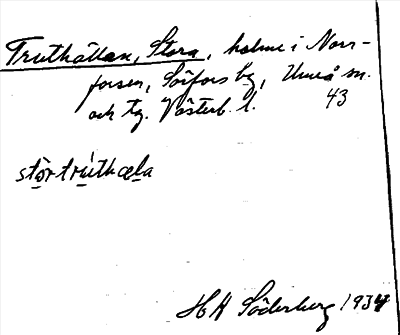 Truthällan, Stora, holme i Norr-
forsen, Sörfors by, Umeå sn.
och tg. Västerb. l. 43
stòrtrúthæla
HH Söderberg 1934